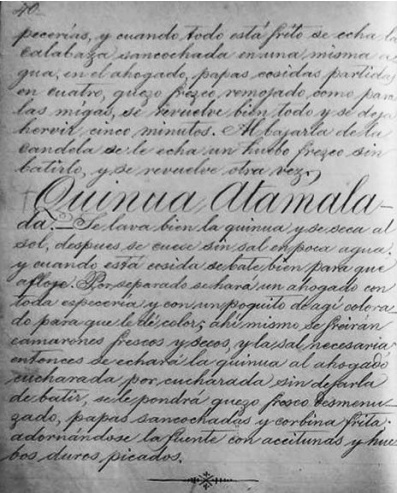 40.
pecerías, y cuando todo está frito se echa la
calabaza sancochada en una misma a-
gua, en el ahogado, papas cosidas partidas
en cuatro, quezo frezco remojado como para
las migas, se revuelve bien todo y se deja
hervir cinco minutos. Al bajarla de la
candela se le echa un huevo frezco sin
batirlo, y se revuelve otra vez.
Quinua Atamala-
da.—Se lava bien la quinua y se seca al
sol, despues se cuese sin sal en poca agua,
y cuando está cosida se bate bien para que
afloge. Por separado se hará un ahogado con
toda especería y con un poquito de agí colora-
do para que le dé color; ahí mismo se freirán
camarones frescos y secos, y la sal necesaria
entonces se echará la quinua al ahogado
cucharada por cucharada sin dejarla
de batir, se le pondrá quezo fresco desmenu-
zado, papas sancochadas y corbina frita:
adornándose la fuente con aceitunas y hue-
bos duros picados.